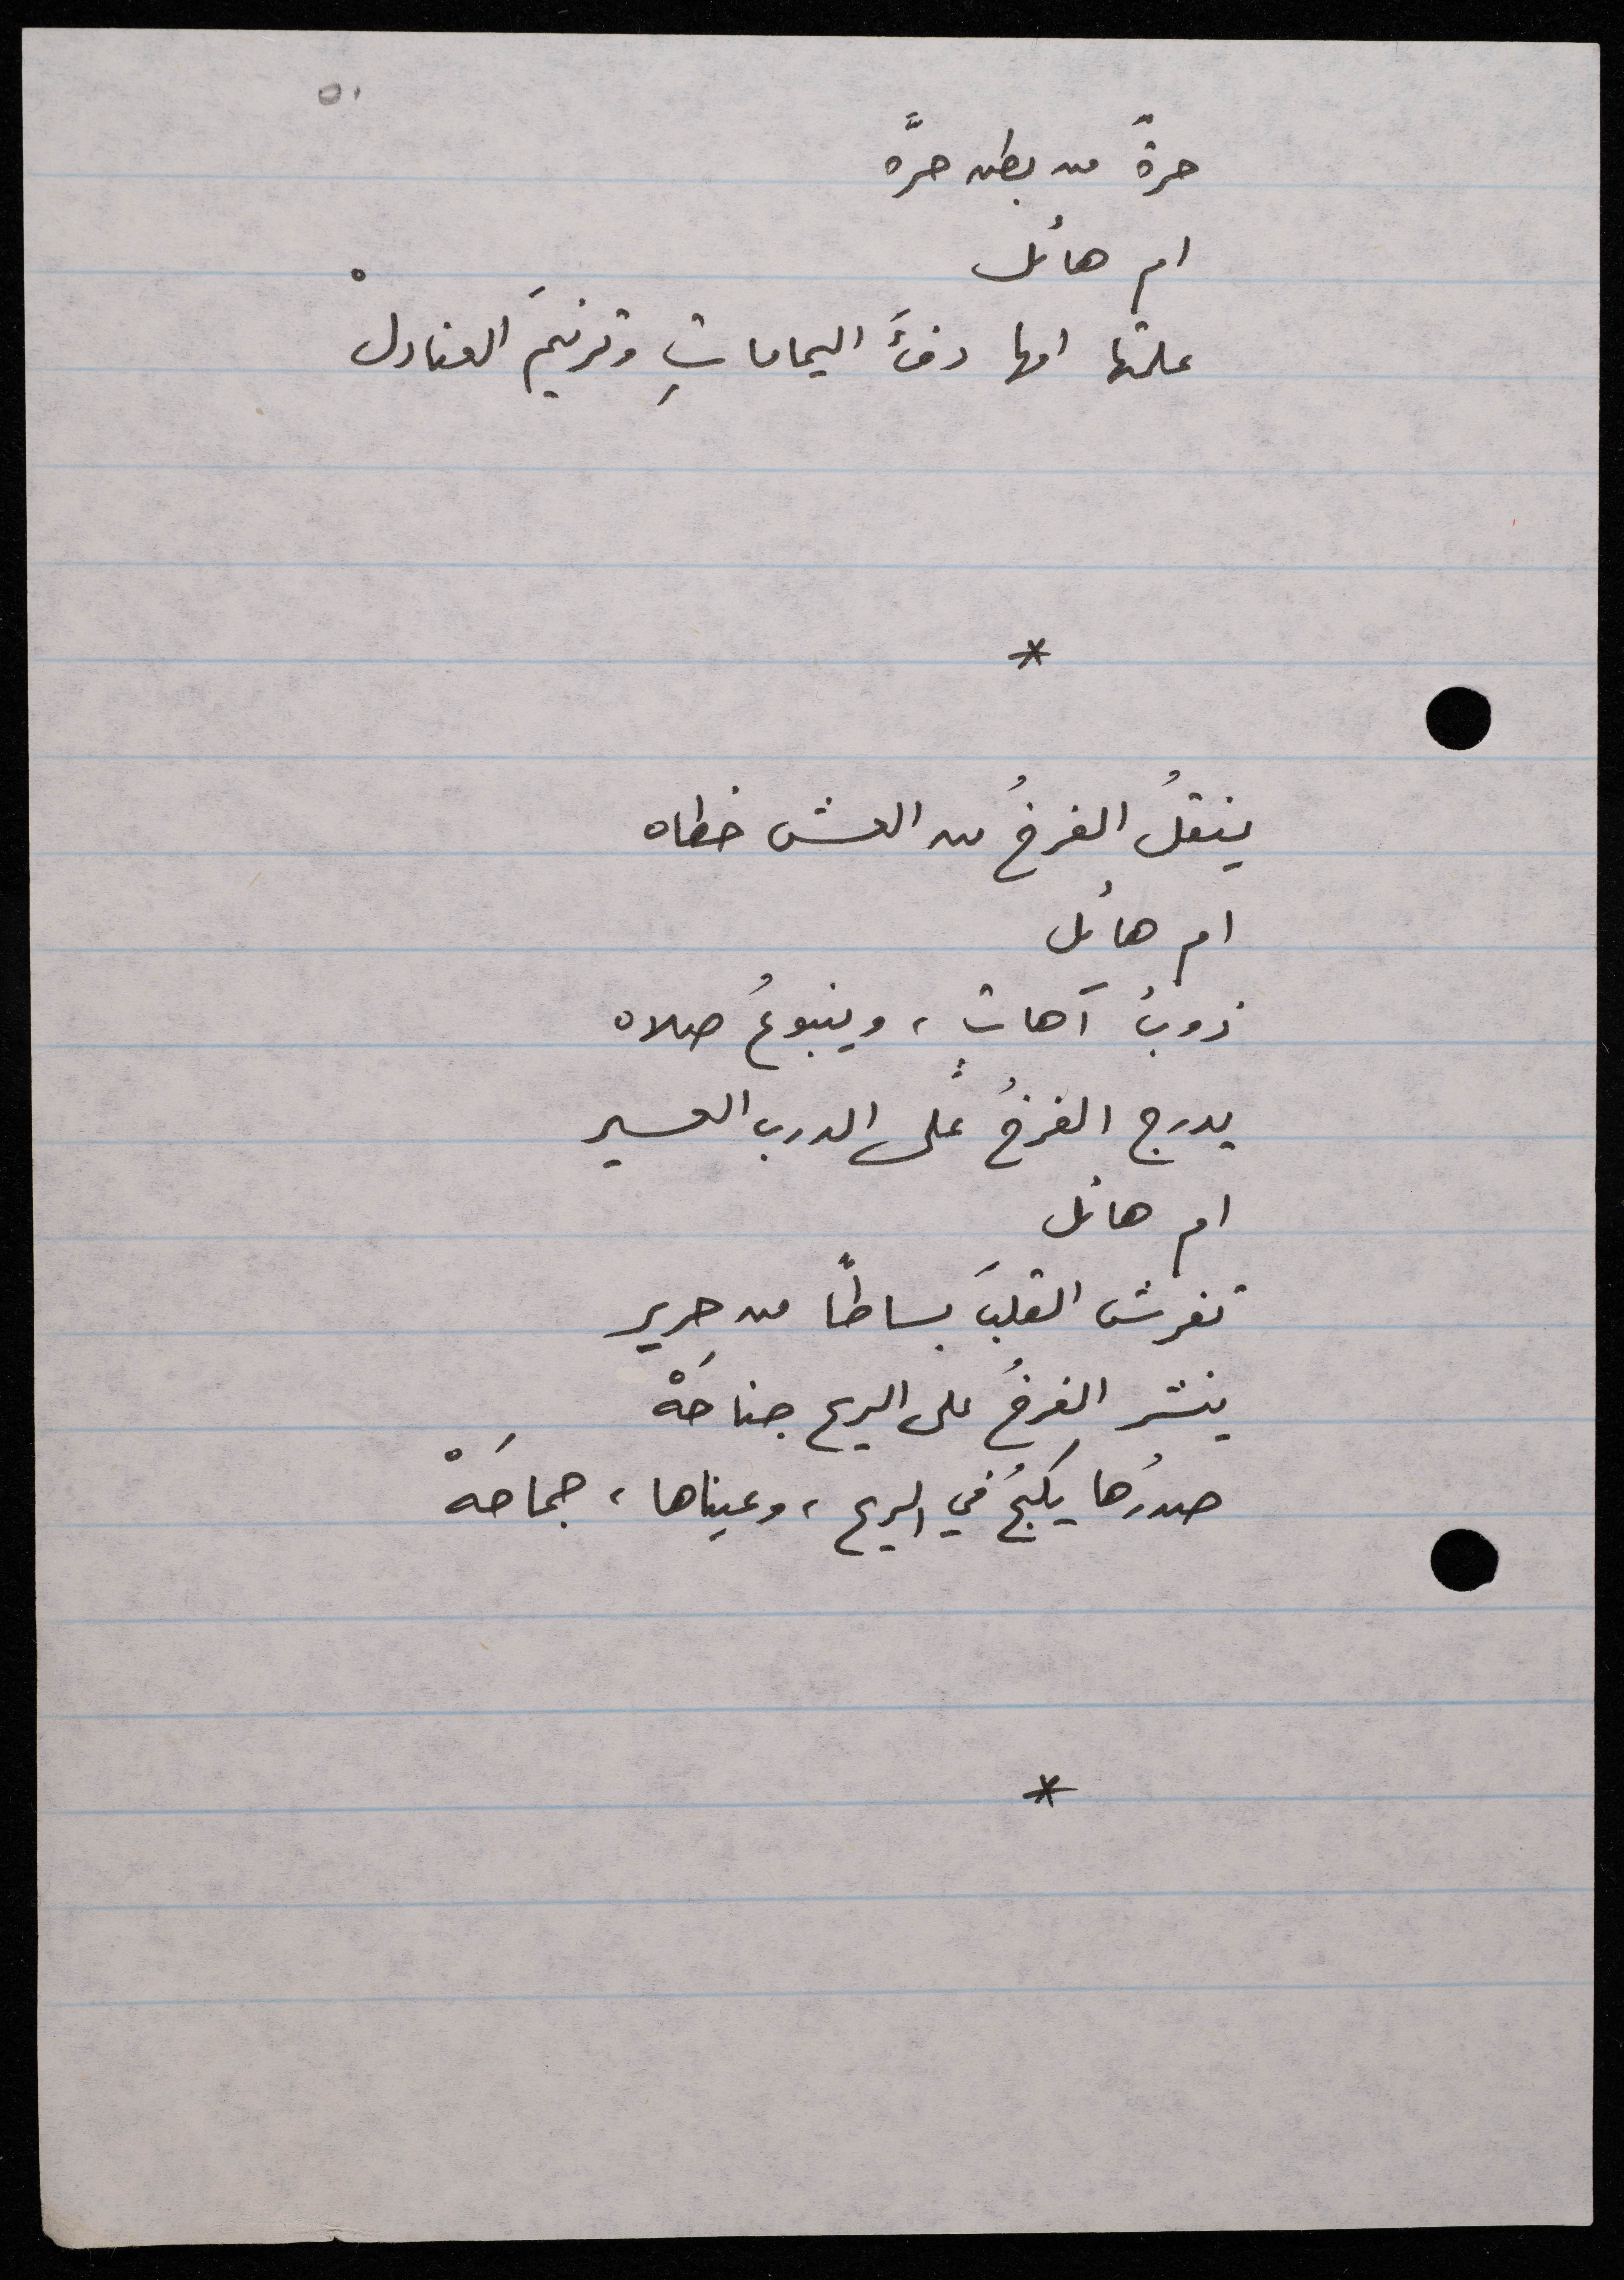 ٥٠
حرةً من بطن حرَّه
ام هائل
علمتها امها دفءَ اليماماتِ وترنيمَ العنادلْ
*
ينقلُ الفرخُ من العش خطاه
ام هائل
ذوبُ آهاتٍ، وينبوعُ صلاه
يدرج الفرخُ على الدرب العسير
ام هائل
تفرش القلبَ بساطًا من حرير
ينشر الفرخُ على الريح جناحَهْ
صدرُها يكبحُ في الريح، وعيناها، جماحَهْ
*